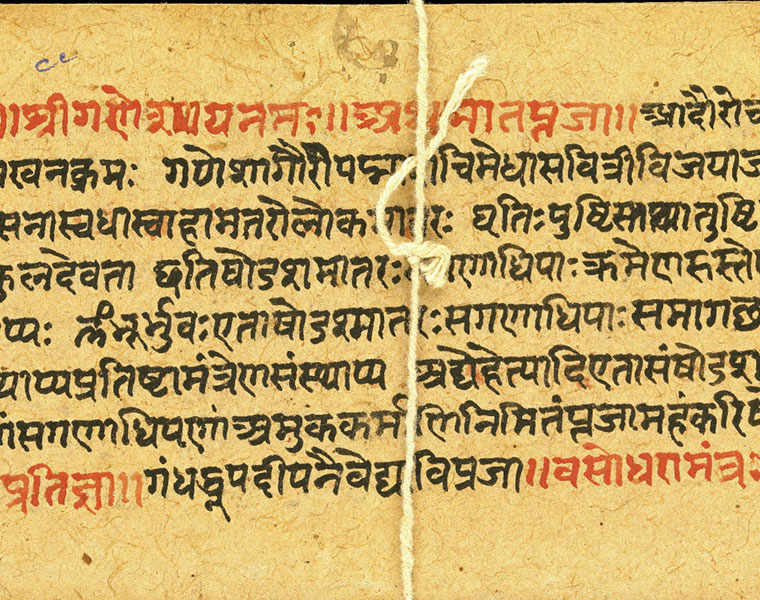 ॥श्रीगणेशायनमः॥अथमातृपूजा॥ आदौरो
खनक्रमः गणेशागौरीपद्मा चिमेधासवित्रीविजयाज
सनास्वधास्वाहामतरोलोकमातरः धृतिःपुष्टिस्तथातुष्टि
कुलदेवता इतिषोडशमातरः णाधिपाः क्रमेणहस्ते
प्यः भूर्भुवःएताषोडशमातरःसगणाधिपाःसमागछ
थाप्यप्रतिष्टामंत्रेणसंस्थाप्य अद्येहेत्यादिएतासंषोडश
सगणाधिपणां अमुककर्म णिनिमितंपूजामहंकरि
प्रतिज्ञा॥ गंधद्धूपदीपनैवेद्य विपूजा॥वसोधरामंत्रः